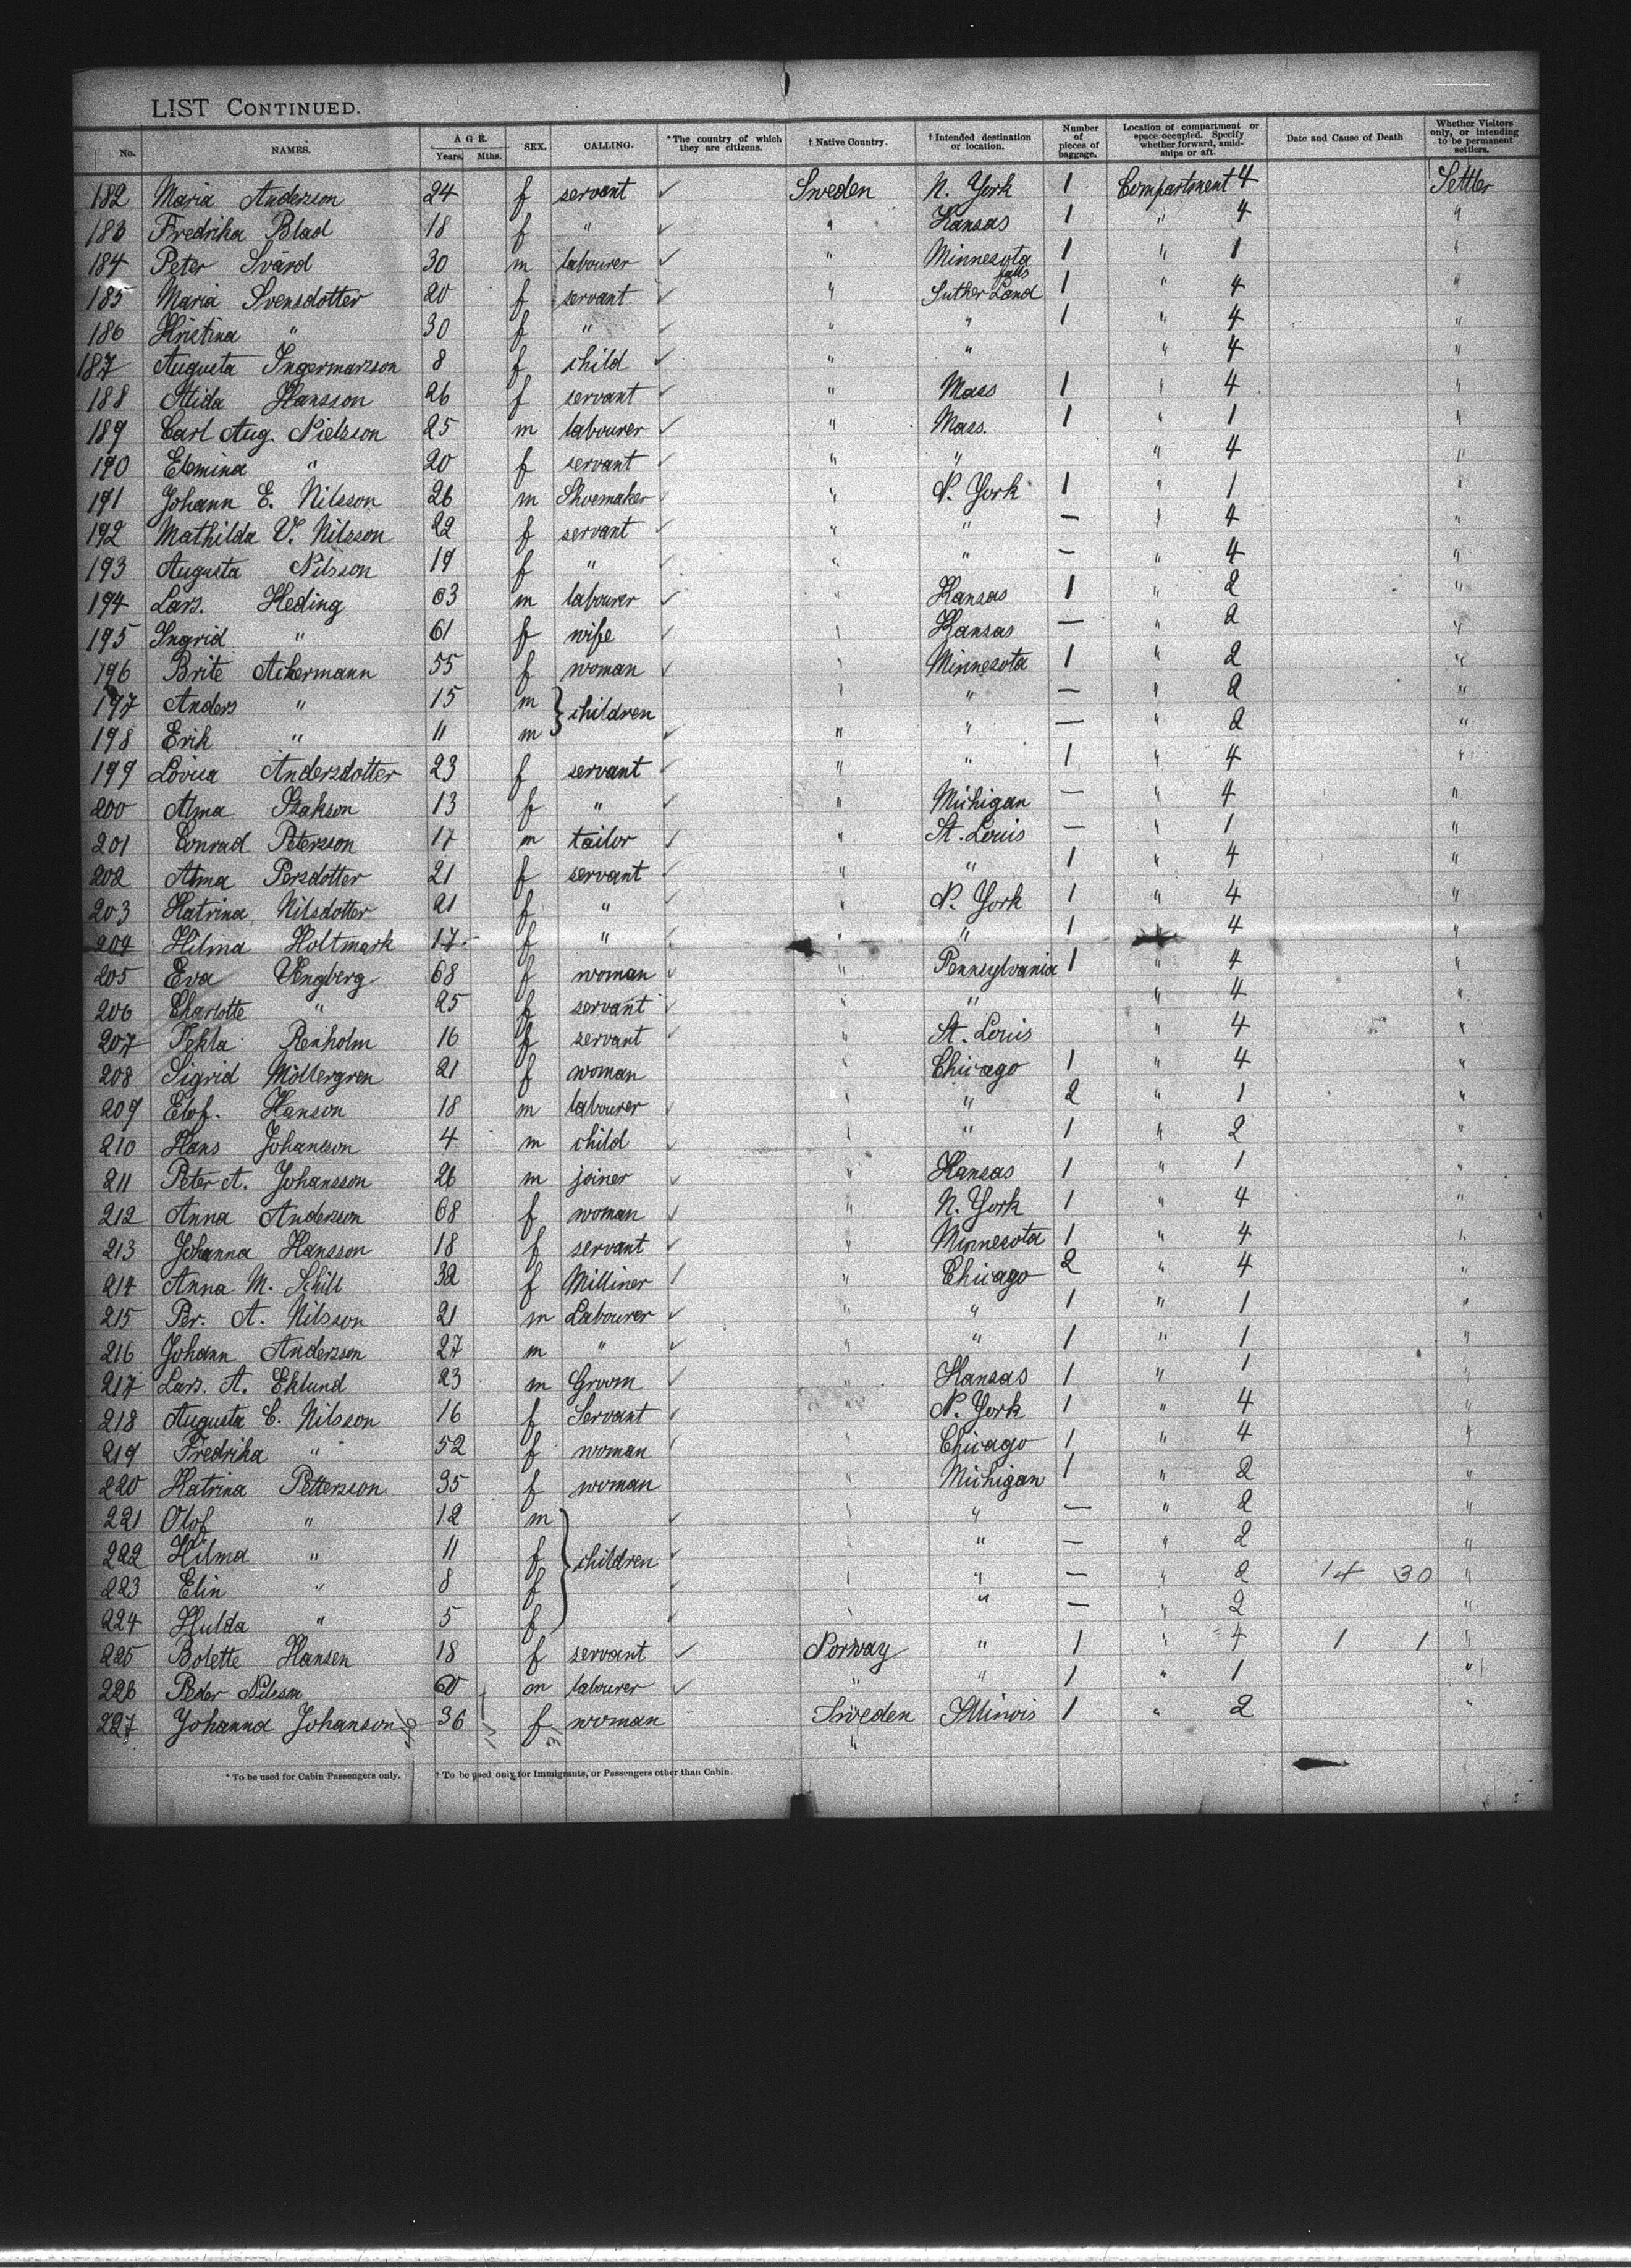 LIST CONTINUED.
No. NAMES. AGE. Years. Mths. SEX. CALLING. *The country of which they are citizens. † Native Country. † Intended destination or location. Number of pieces of baggage. Location of compartment or space occupied. Specify whether forward, amidships or aft. Date and Cause of Death Whether Visitors only, or intending to be permanent settlers.
182 Maria Anderson 24 f servant ✓ Sweden N. York 1 Compartment 4 Settler
183 Fredrika Blad 18 f " ✓ " Kansas 1 " 4 "
184 Peter Svärd 30 m labourer ✓ " Minnesota 1 " 1 "
185 Maria Svensdotter 20 f servant ✓ " Suther Land falls 1 " 4 "
186 Kristina " 30 f " ✓ " " 1 " 4 "
187 Augusta Ingermarsson 8 f child ✓ " " " 4 "
188 Hansson 26 f servant ✓ " Mass 1 " 4 "
189 Carl Aug. Nielsson 25 m labourer ✓ " Mass. 1 " 1 "
190 Elmina " 20 f servant ✓ " " " 4 "
191 Johann E. Nilsson 26 m Shoemaker ✓ " N. York 1 " 1 "
192 Mathilda V. Nilsson 22 f servant ✓ " " — " 4 "
193 Augusta Nilsson 19 f " ✓ " " — " 4 "
194 Lars. Heding 63 m labourer ✓ " Kansas 1 " 2 "
195 Ingrid " 61 f wife ✓ " Kansas — " 2 "
196 Brite Ackermann 55 f woman ✓ " Minnesota 1 " 2 "
197 Anders " 15 m } children " " — " 2 "
198 Erik " 11 m ✓ " " — " 2 "
199 Lovisa Andersdotter 23 f servant ✓ " " 1 " 4 "
200 Alma Isakson 13 f " ✓ " Michigan — " 4 "
201 Conrad Peterson 17 m tailor ✓ " St. Louis — " 1 "
202 Alma Persdotter 21 f servant ✓ " " 1 " 4 "
203 Katrina Nilsdotter 21 f " ✓ " N. York 1 " 4 "
204 Hilma Holtmark 17 f " ✓ " " 1 " 4 "
205 Eva Engberg 68 f woman ✓ " Pennsylvania 1 " 4 "
206 Charlotte " 25 f servant ✓ " " " 4 "
207 Tekla Renholm 16 f servant ✓ " St. Louis " 4 "
208 Sigrid Möllergren 21 f woman " Chicago 1 " 4 "
209 Elof. Hanson 18 m labourer ✓ " " 2 " 1 "
210 Hans Johansson 4 m child ✓ " " 1 " 2 "
211 Peter A. Johansson 26 m joiner ✓ " Kansas 1 " 1 "
212 Anna Anderson 68 f woman ✓ " N. York 1 " 4 "
213 Johanna Hansson 18 f servant ✓ " Minnesota 1 " 4 "
214 Anna M. Schill 32 f Milliner ✓ " Chicago 2 " 4 "
215 Per. A. Nilsson 21 m Labourer ✓ " " 1 " 1 "
216 Johann Anderson 27 m " ✓ " " 1 " 1 "
217 Lars. A. Eklund 23 m Groom ✓ " Kansas 1 " 1 "
218 Augusta C. Nilsson 16 f Servant ✓ " N. York 1 " 4 "
219 Fredrika " 52 f woman ✓ " Chicago 1 " 4 "
220 Katrina Petterson 35 f woman " Michigan 1 " 2 "
221 Olof " 12 m ✓ " " — " 2 "
222 Hilma " 11 f } children ✓ " " — " 2 "
223 Elin " 8 f ✓ " " — " 2 14 30 "
224 Hulda " 5 f ✓ " " — " 2 "
225 Bolette Hansen 18 f servant ✓ Norway " 1 " 4 1 1 "
226 Peder Nilsson 60 m labourer ✓ " " 1 " 1 "
227 Johanna Johanson 36 f woman Sweden Illinois 1 " 2 "
"
* To be used for Cabin Passengers only. † To be used only for Immigrants, or Passengers other than Cabin.